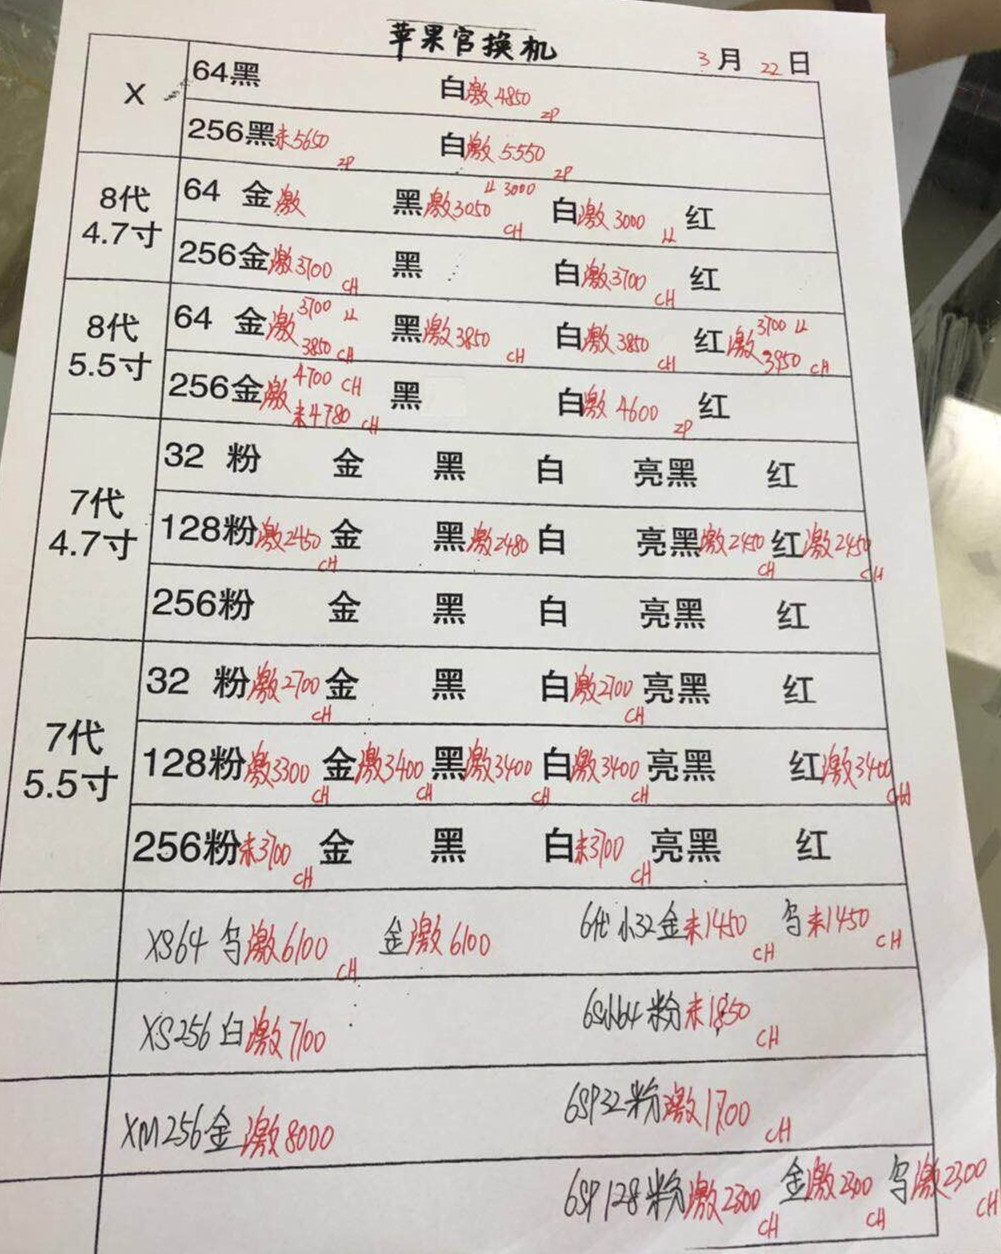 苹果官换机
3月22日
X
64黑 白激4850 ZP
256黑未5650 ZP 白激5550 ZP
8代
4.7寸
64 金激 黑激3050 CH LL 3000 白激3000 LL 红
256金激3700 CH 黑 白激3700 CH 红
8代
5.5寸
64 金激3700 LL 3850 CH 黑激3850 CH 白激3850 CH 红激3700 LL 3950 CH
256金激4700 CH 未4780 CH 黑 白激4600 ZP 红
7代
4.7寸
32 粉 金 黑 白 亮黑 红
128粉激2450 CH 金 黑激2480 白 亮黑激2450 CH 红激2450 CH
256粉 金 黑 白 亮黑 红
7代
5.5寸
32 粉激2700 CH 金 黑 白激2700 CH 亮黑 红
128粉激3300 CH 金激3400 CH 黑激3400 CH 白激3400 CH 亮黑 红激3400 CH
256粉未3700 CH 金 黑 白未3700 CH 亮黑 红
XS64 乌激6100 CH 金激6100 6代小32金未1450 CH 乌未1450 CH
XS256白激7100 粉未1850 CH
XM256金激8000 6SP32粉激1700 CH
6SP128粉激2300 CH 金激2300 CH 乌激2300 CH